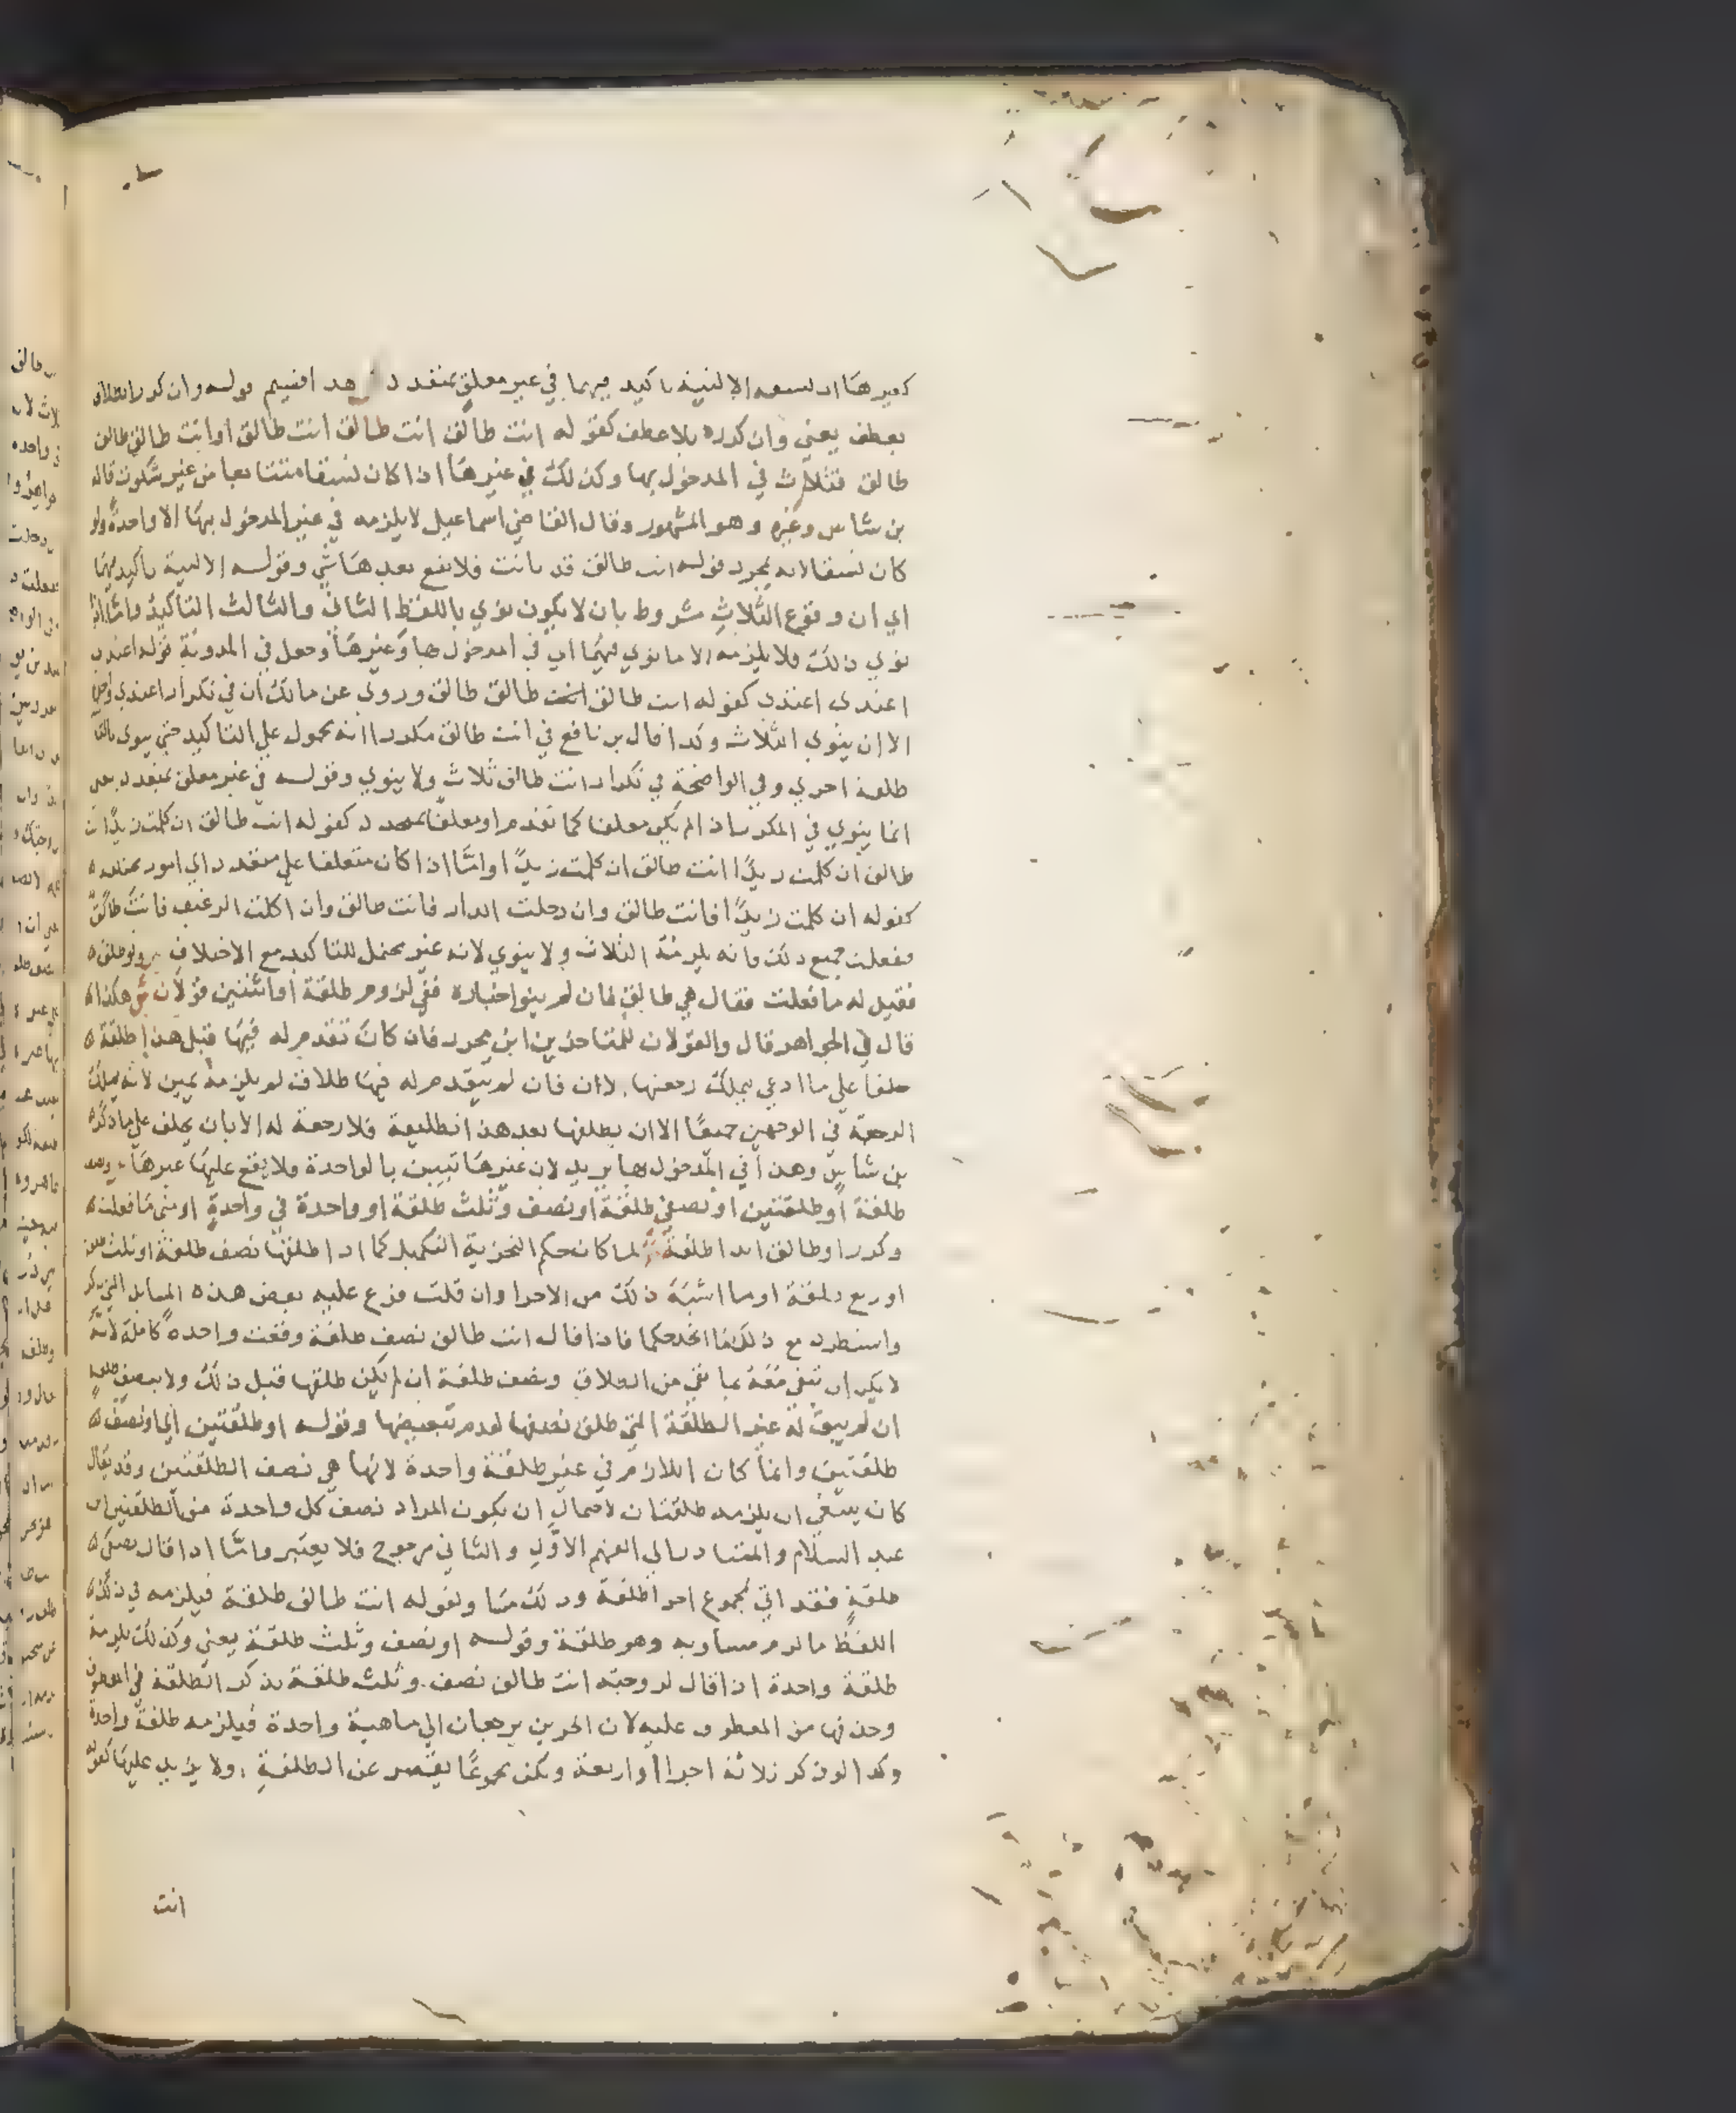 كغيرها ان نسقه الا لنية تاكيد فيهما في غير معلق بمتعدد هذا قسيم قوله وان كرر الطلاق
بعطف يعني وان كرره بلا عطف كقوله انت طالق انت طالق انت طالق او انت طالق طالق
طالق فثلاث في المدخول بها وكذلك في غيرها اذا كان نسقا متتابعا من غير سكوت قاله
بن شاس وغيره وهو المشهور وقال القاضي اسماعيل لا يلزمه في غير المدخول بها الا واحدة ولو
كان نسقا لانه بمجرد قوله انت طالق قد بانت فلا يقع بعدها شي وقوله الا لنية تاكيد فيهما
اي ان وقوع الثلاث مشروط بان لا يكون نوي باللفظ الثاني والثالث التاكيد واما اذا
نوي ذلك فلا يلزمه الا ما نوي فيهما اي في المدخول بها وغيرها وجعل في المدونة قوله اعتدي
اعتدي اعتدي كقوله انت طالق انت طالق طالق وروي عن مالك ان في تكرار اعتدي واحدة
الا ان ينوي الثلاث وكذا قال بن نافع في انت طالق مكررا انه محمول علي التاكيد حتي ينوي بالثا
طلقة اخري وفي الواضحة في تكرار انت طالق ثلاث ولا ينوي وقوله في غير معلق بمتعدد يعني
انما ينوي في المكرر اذا لم يكن معلقا كما تقدم او معلقا بمتحد كقوله انت طالق ان كلمت زيدا انت
طالق ان كلمت زيدا انت طالق ان كلمت زيدا واما اذا كان متعلقا علي متعدد اي امور متعدده
كقوله ان كلمت زيدا فانت طالق وان دخلت الدار فانت طالق وان اكلت الرغيف فانت طالق
ففعلت جميع ذلك فانه يلزمه الثلاث ولا ينوي لانه غير محتمل للتاكيد مع الاختلاف ص ولو طلق
فقيل له ما فعلت فقال هي طالق فان لم ينو اخباره ففي لزوم طلقة او اثنتين قولان ش هكذا
قال في الجواهر قال والقولان للمتاخرين ابن محرز فان كان تقدم له فيها قبل هذا طلقة
حلف علي ما ادعي ليملك رجعتها الان فان لم يتقدم له فيها طلاق لم يلزمه يمين لانه يملك
الرجعة في الوجهين جميعا الا ان يطلقها بعد هذا تطليقة فلا رجعة له الا بان يحلف علي ما ذكره
بن شاس وهذا في المدخول بها يريد لان غيرها تبين بالواحدة ولا يقع عليها غيرها
طلقة او طلقتين او نصفي طلقة او نصف وثلث طلقة او واحدة في واحدة او متي ما فعلت
وكرر او طالق ابدا طلقة ش لما كان حكم التجزية التكميل كما اذا طلقها نصف طلقة او ثلث طلقة
او ربع طلقة او ما اشبه ذلك من الاجزا وان قلت فرع عليه بعض هذه المسايل التي ذكر
واستطرد مع ذلك ما اتحد حكما فاذا قال انت طالق نصف طلقة وقعت واحدة كاملة لانه
لا يمكن ان تبقي معه بما بقي من الطلاق ونصف طلقة ان لم يكن طلقها قبل ذلك ولا بنصف طلقة
ان لم يبق له غير الطلقة التي طلق نصفها لعدم تبعيضها وقوله او طلقتين اي او نصف
طلقتين وانما كان اللازم في غير طلقة واحدة لانها هي نصف الطلقتين وقد يقال
كان ينبغي ان يلزمه طلقتان لاحتمال ان يكون المراد نصف كل واحدة من الطلقتين ابن
عبد السلام والمتبادر الي الفهم الاول والثاني مرجوح فلا يعتبر واما اذا قال نصفي
طلقة فقد اتي بمجموع اجزا طلقة وذلك مساو لقوله انت طالق طلقة فيلزمه في ذلك
اللفظ ما لزم مساويه وهو طلقة وقوله او نصف وثلث طلقة يعني وكذلك يلزمه
طلقة واحدة اذا قال لزوجته انت طالق نصف وثلث طلقة بذكر الطلقة في المعطوف
وحذفها من المعطوف عليه لان الجزين يرجعان الي ماهية واحدة فيلزمه طلقة واحدة
وكذا لو ذكر ثلاثة اجزا او اربعة ولكن مجموعها يقصر عن الطلقة ولا يزيد عليها كقوله
انت